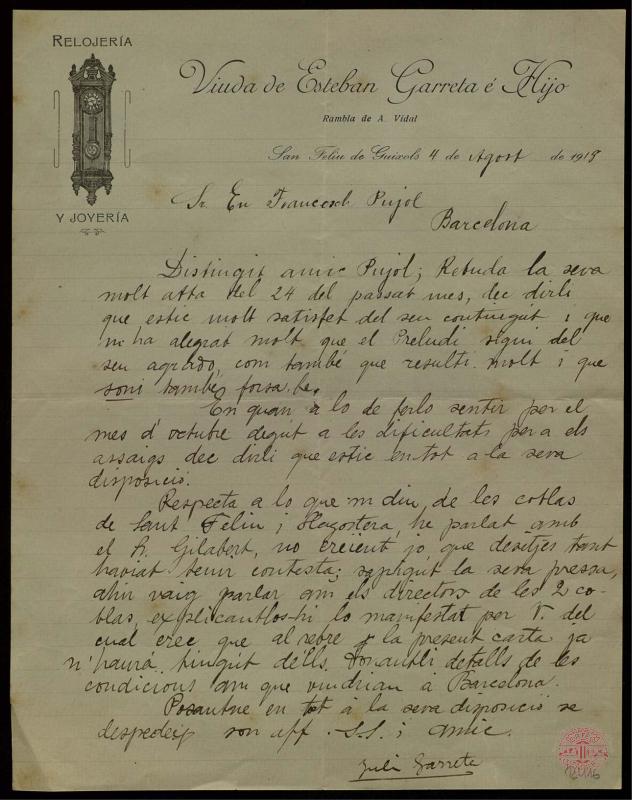 RELOJERÍA
Viuda de Esteban Garreta é Hijo
Rambla de A. Vidal
San Feliu de Guixols 4 de Agost de 1918
Y JOYERÍA
Sr. En Francesch Pujol
Barcelona
Distingit amic Pujol; Rebuda la seva
molt atta del 24 del passat mes, dec dirli
que estic molt satisfet del seu contingut i que
m'ha alegrat molt que el Preludi sigui del
seu agrado, com també que resulti molt i que
soni també forsa be.
En quan a lo de ferlo sentir per el
mes d'octubre degut a les dificultats per a els
assaigs dec dirli que estic en tot a la seva
disposició.
Respecta a lo que m diu de les coblas
de Sant Feliu i Llagostera, he parlat amb
el Sr. Gilabert, no creient jo que desitjes tant
haviat tenir contesta; sapigut la seva pressa,
ahir vaig parlar am els directors de les 2 co-
blas, explicantlos-hi lo manifestat per V. del
cual crec que al rebre la present carta ja
n'haurá tingut d'ells. Donantli detalls de les
condicions am que vindrian á Barcelona.
Posantme en tot a la seva disposició se
despedeig son aff. S.S. i amic.
Juli Garreta